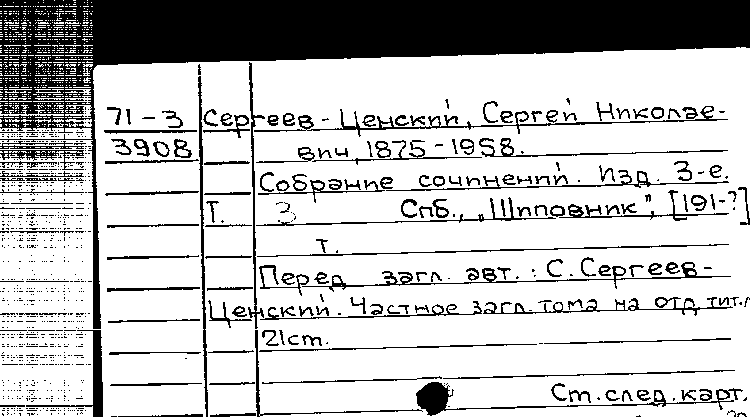 71-3 Сергеев-Ценский, Сергей Николае-
3908 вич, 1875-1958.
Собрание сочинений. Изд. 3-е.
Т. 3 Спб., "Шиповник", [191-?]
т.
Перед загл. авт.: С. Сергеев-
Ценский. Частное загл. тома на отд. тит. л
21см.
См. след. карт.